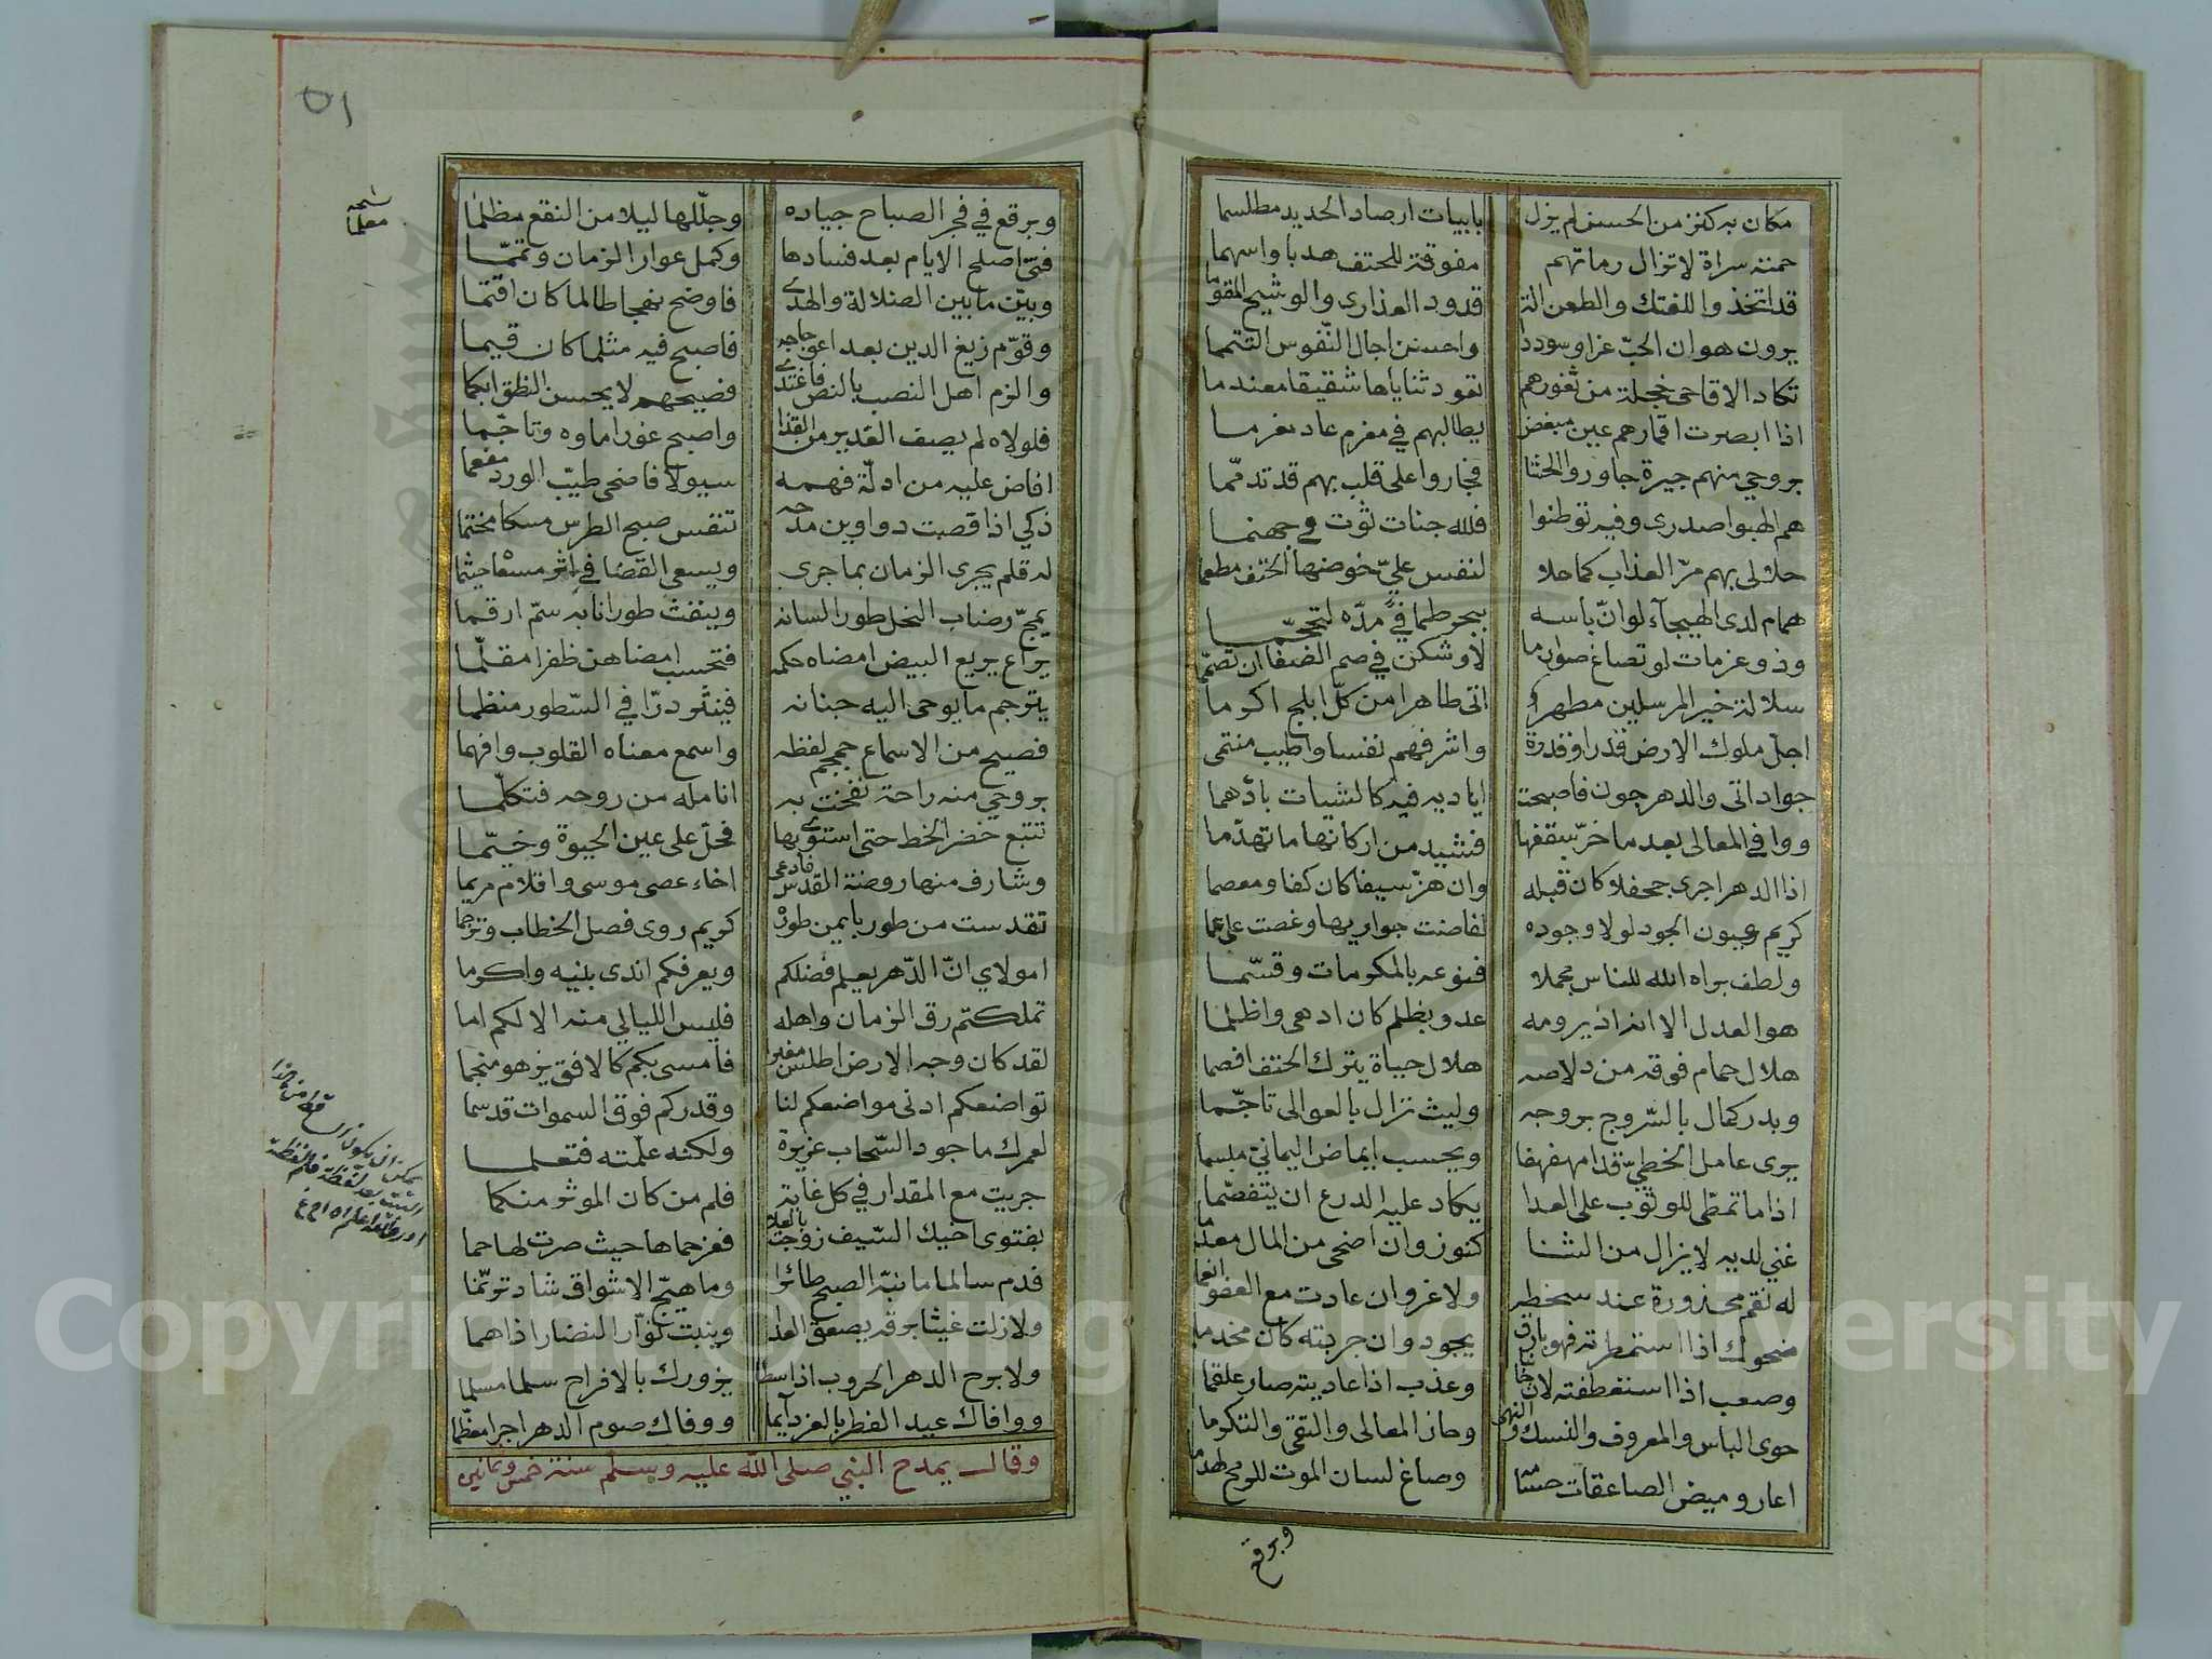 مكان به كنز من الحسن لم يزل بابيات ارصاد الحديد مطلسما
حمته سراة لا تزال رماتهم مفوقة للحتف هدبا واسهما
قد اتخذوا للفتك والطعن الة قدود العذارى والوشيج المقوما
يرون هوان الحبّ عزا وسوددا واحسن اجال النّفوس التتمما
تكاد الاقاحى خجلة من ثغورهم تعود ثناياها شقيقا معندما
اذا ابصرت اقمارهم عين مبغض يطالبهم في مغرم عاد مغرما
بروحي منهم جيرة جاوروا الحشا فجاروا على قلب بهم قد تدمّما
هم الهبوا صدرى وفيه توطنوا فلله جنات ثوت في جهنما
حلا لى بهم مرّ العذاب كما حلا لنفس عليّ خوضها الحتف مطعما
همام لدى الهيجآء لو انّ بأسه ببحر طما في مدّه لتجحّما
وذو عزمات لو تصاغ صوارما لاوشكن في صم الصفا ان تصمّما
سلالة خير المرسلين مطهر اتى طاهرا من كلّ ابلج اكرما
اجلّ ملوك الارض قدرا وقدرة واشرفهم نفسا واطيب منتمى
جواد اتى والدهر جون فاصبحت اياديه فيه كالشيات بادهما
ووافى المعالى بعد ما خرّ سقفها فشيد من اركانها ما تهدّما
اذا الدهر اجرى جحفلا كان قبله وان هزّ سيفا كان كفا ومعصما
كريم وعيون الجود لولا وجوده لفاضت جواريها وغصت على عما
ولطف براه الله للناس مجملا فنوعه بالمكرمات وقسّما
هو العدل الا انه اذ يرومه عدو بظلم كان ادهى واظلما
هلال حمام فوقه من دلاصه هلال حياة يترك الحتف افصما
وبدر كمال بالسّروج بروجه وليث نزال بالعوالى تاجّما
يرى عامل الخطيّ قدا مهفهفا ويحسب ايماض اليمانيّ مبسما
اذا ما تمطّى للوثوب على العدا يكاد عليه الدرع ان يتفصّما
غني لديه لا يزال من الثنا كنوز وان اضحى من المال معدما
له نقم محذورة عند سخطه ولا غرو ان عادت مع العفو انعما
ضحوك اذا استمطرته فهو بارق يجود وان جربته كان مخذما
وصعب اذا استعطفته لان جانبا وعذب اذا عاديته صار علقما
حوى الباس والمعروف والنسك والنهى وحاز المعالى والتقى والتكرما
اعار وميض الصاعقات حسامه وصاغ لسان الموت للرمح لهذما
وبرقع
٥١
وبرقع في فجر الصباح جياده وجلّلها ليلا من النقع مظلما
نسخه معلما
فتى اصلح الايام بعد فسادها وكمل عوار الزمان وتمّما
وبيّن ما بين الضلالة والهدى فاوضح نهجا طالما كان اقتما
وقوّم زيغ الدين بعد اعوجاجه فاصبح فيه مثلما كان قيما
والزم اهل النصب بالنص فاغتدى فصيحهم لا يحسن النطق ابكما
فلولاه لم يصف الغدير من القذا واصبح غورا ماوه وتاجّما
افاض عليه من ادلّة فهمه سيولا فاضحى طيّب الورد مفعما
ذكي اذا قصت دواوين مدحه تنفس صبح الطرس مسكا مختما
له قلم يجرى الزمان بما جرى ويسعى القضا في اثر مسعاه حيثما
يمجّ رضاب النحل طورا لسانه وينفث طورا نابه سمّ ارقما
يراع يريع البيض امضاه حكمه فتحسب امضاهن ظفرا مقلّما
يترجم ما يوحى اليه جنانه فينثر درّا في السّطور منظما
فصيح من الاسماع ججم لفظه واسمع معناه القلوب وافهما
بروحي منه راحة نفخت به انامله من روحه فتكلّما
تتبع خضر الخط حتى استوى بها فحلّ على عين الحيوة وخيّما
وشارف منها روضة القدس فادعى اخاء عصى موسى واقلام مريما
تقدست من طور بايمن طوره كريم روى فصل الخطاب وترجما
امولاي انّ الدّهر يعلم فضلكم ويعرفكم اندى بنيه واكرما
تملكتم رق الزمان واهله فليس الليالي منه الا لكم اما
لقد كان وجه الارض اطلس مغبرا فامسى بكم كالافق يزهو منجما
تواضعكم ادنى مواضعكم لنا وقدركم فوق السموات قد سما
لعمرك ما جود السّحاب غزيرة ولكنه علّمته فتعلما
جريت مع المقدار في كل غاية فلم من كان الموثر منكما
بفتوى اخيك السّيف زوجت بالعلا فعز حماها حيث صرت لها حما
فدم سالما ما نبّه الصبح طائرا وما هيّج الاشواق شاد ترنّما
ولا زلت غيثا برقه يصعق العدا وينبت نوّار النضار اذا هما
ولا برح الدهر الحروب اذا سطا يزورك بالافراح سلما مسلما
ووافاك عيد الفطر بالعز دآيما ووفاك صوم الدهر اجرا معظّما
وقال يمدح النبي صلى الله عليه وسلم سنة خمس وثمانين
Copyright © King Saud University